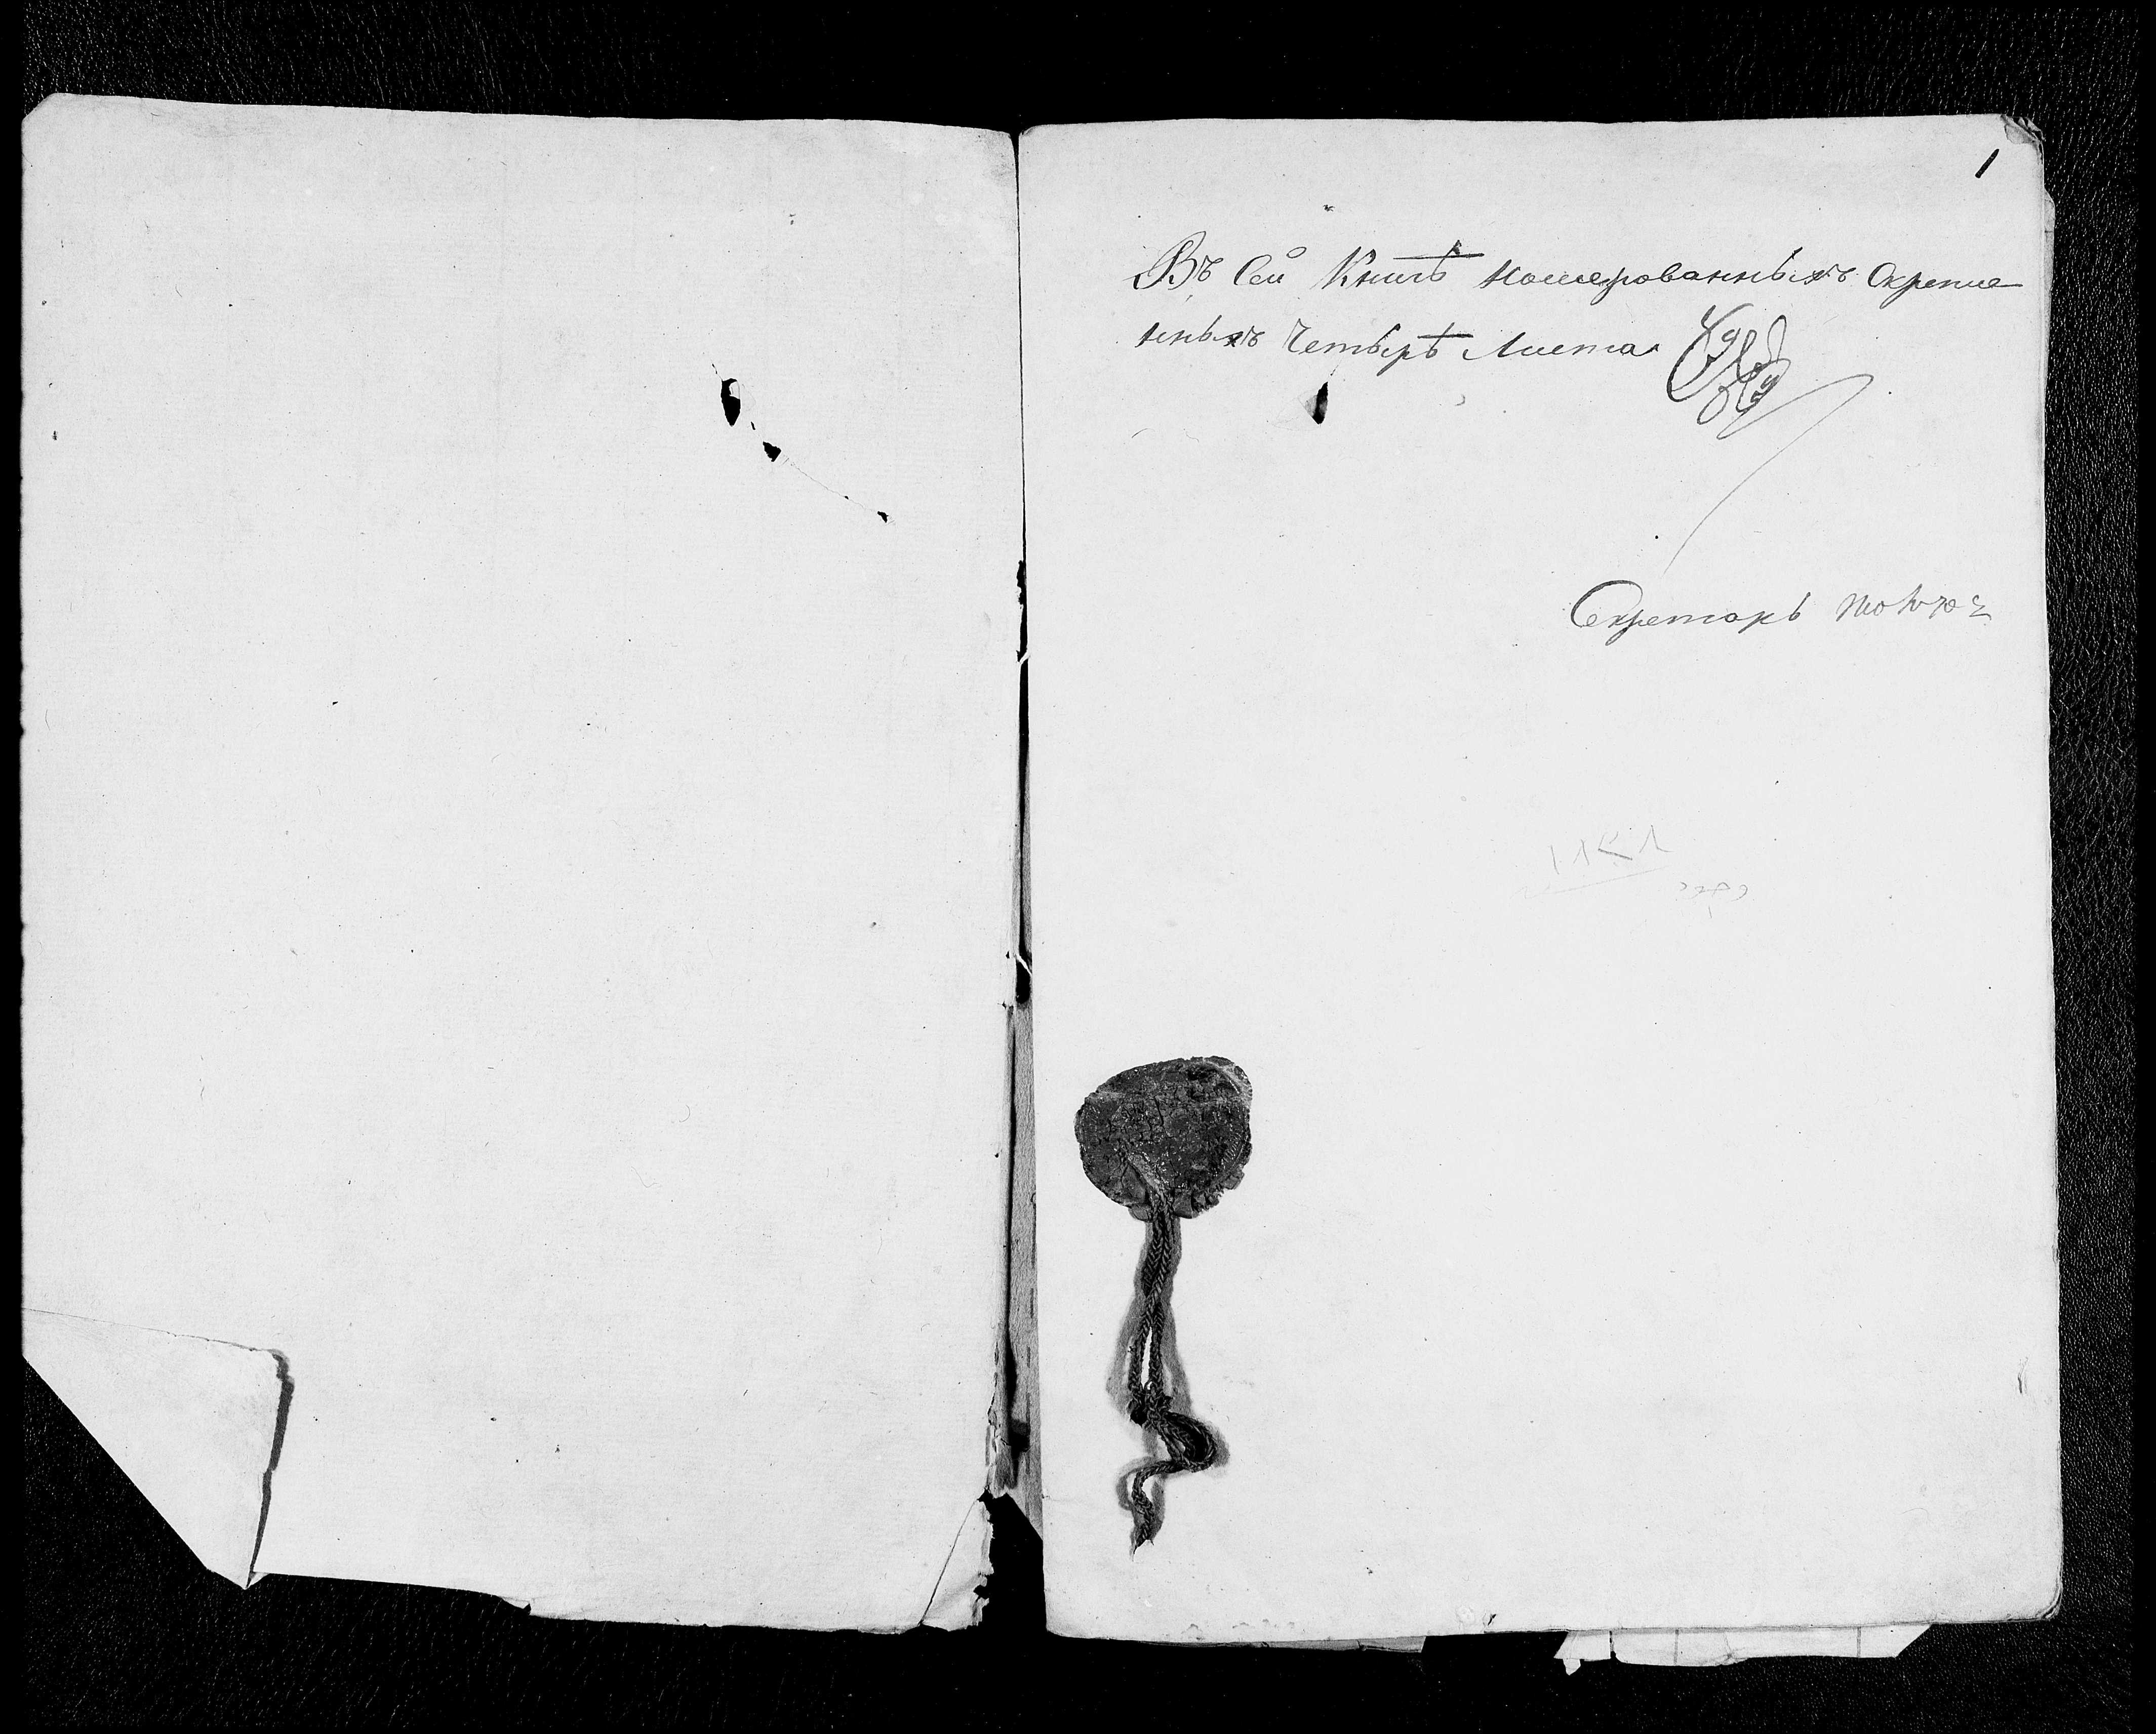 1
Въ Сей Книгѣ номерованныхъ Скрепле
нныхъ Четырѣ Листа
Секретарь